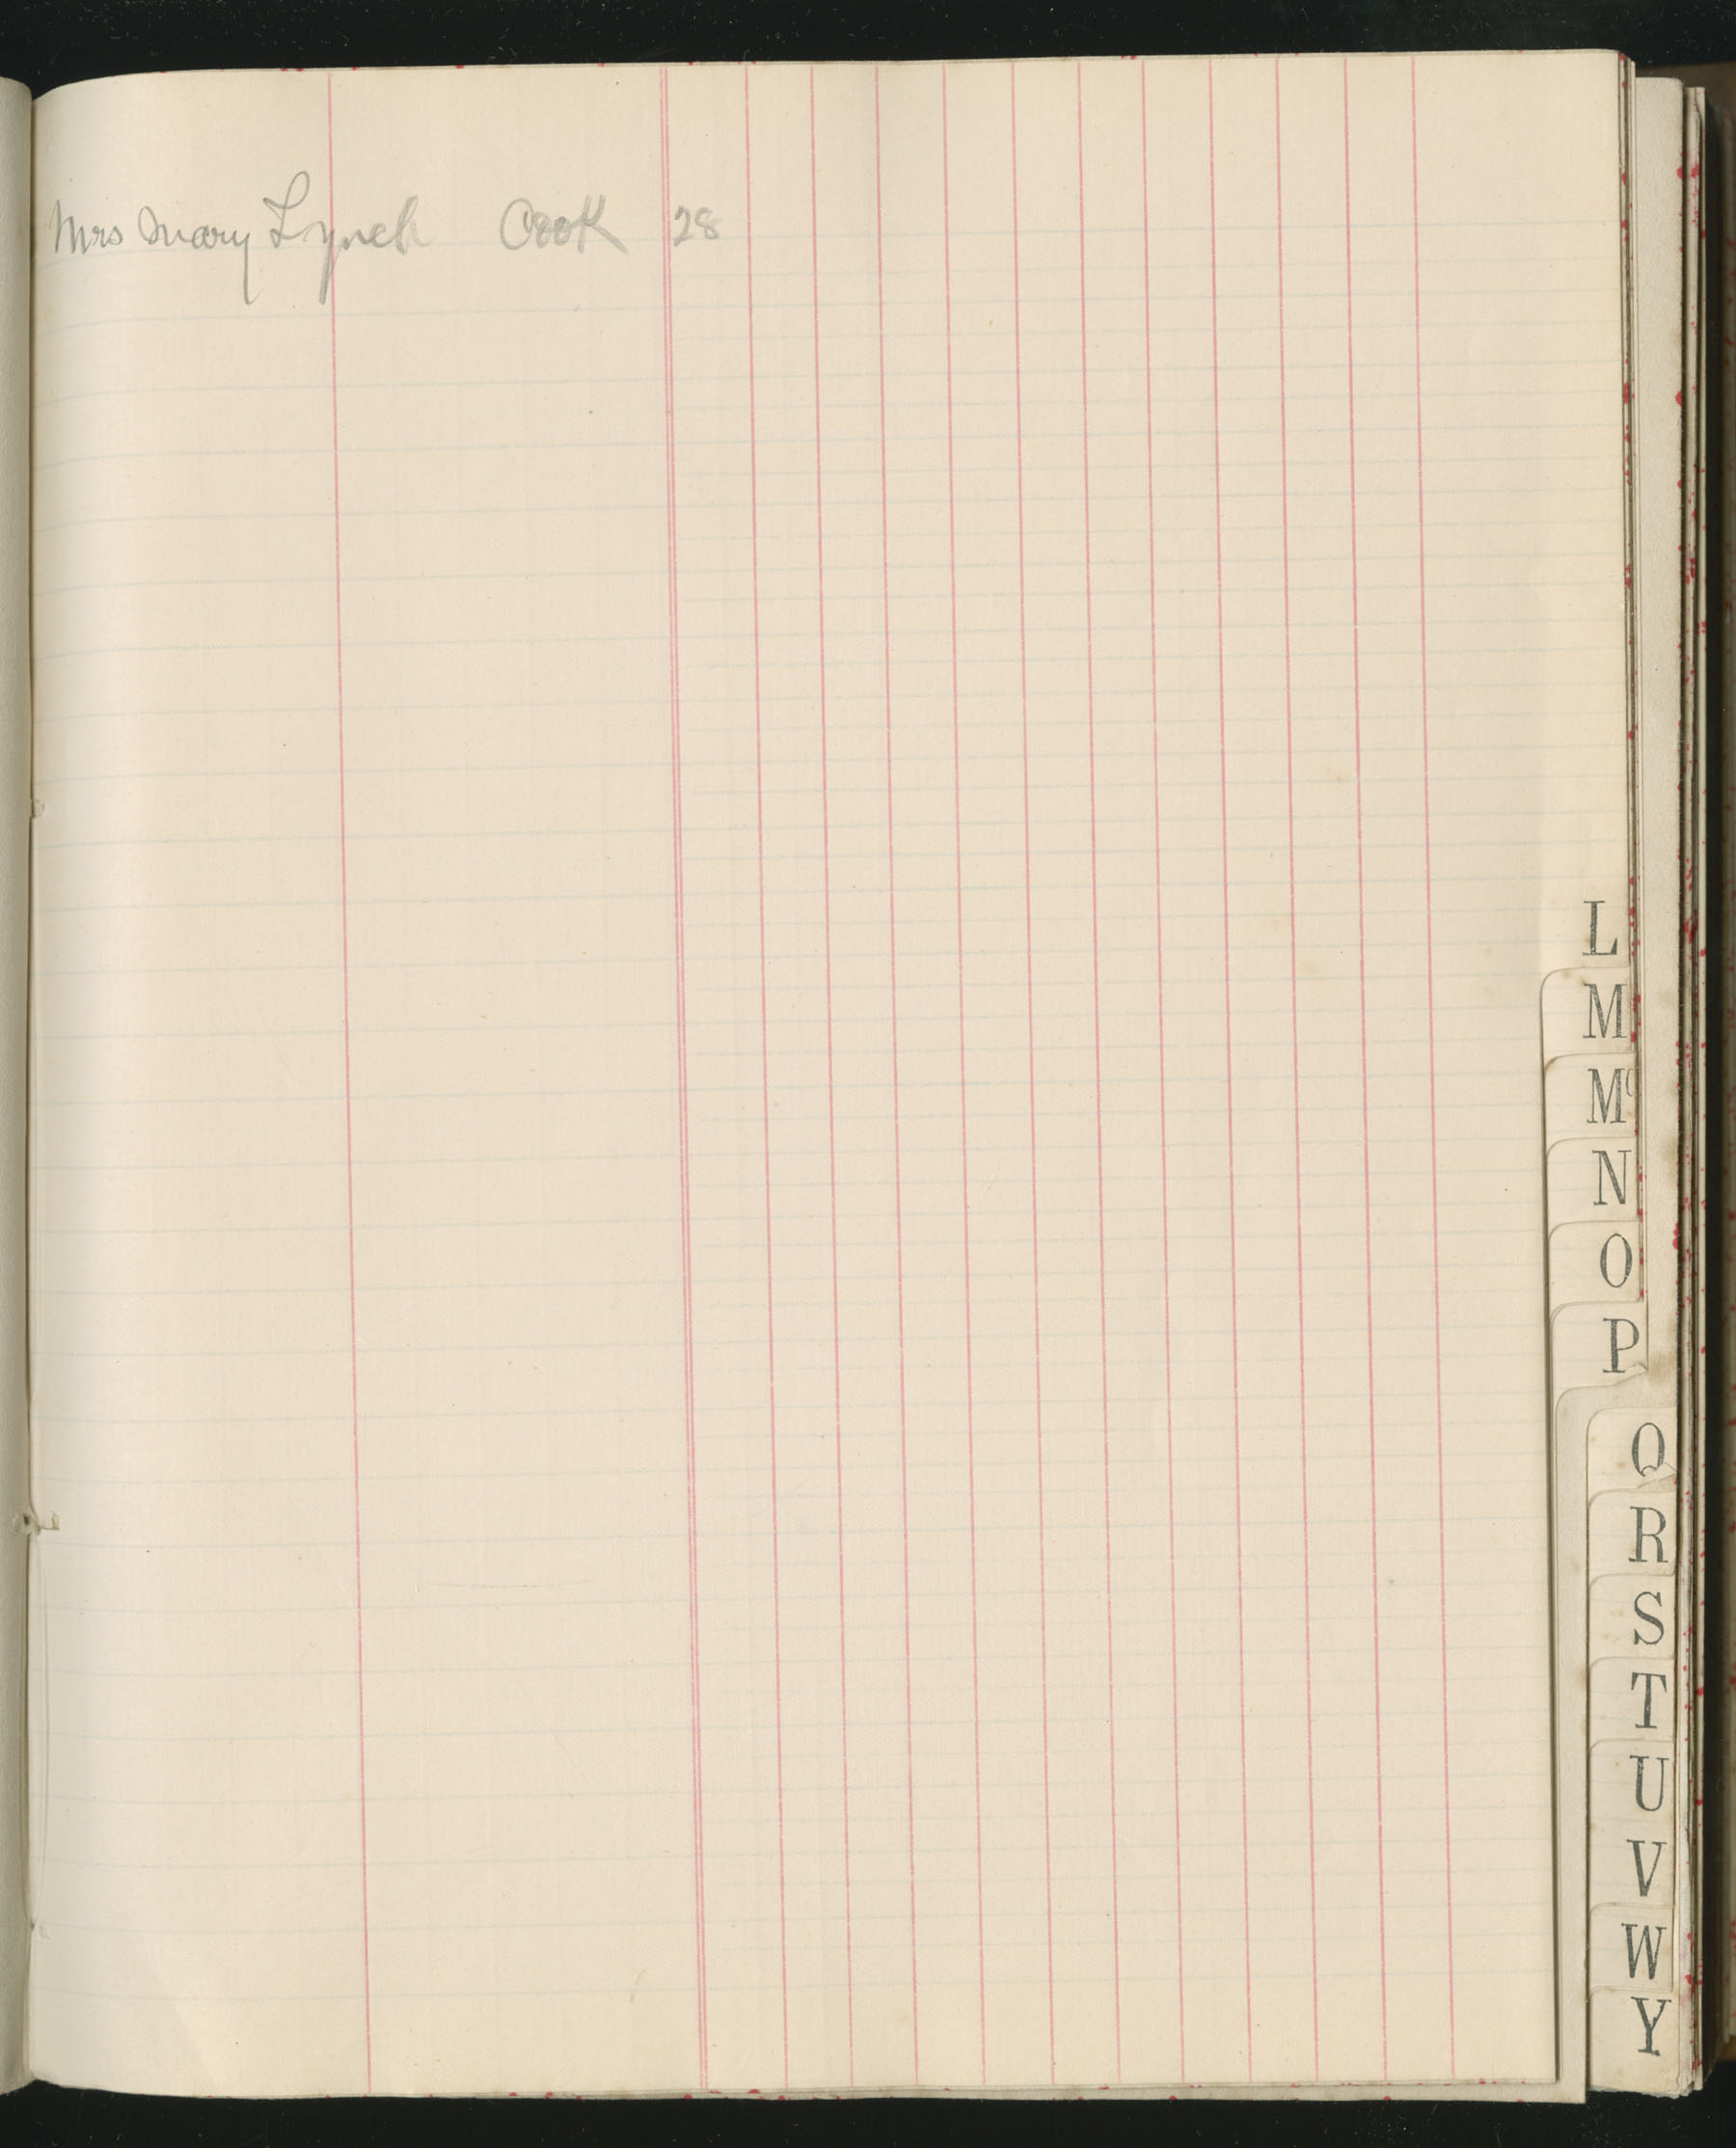 Mrs Mary Lynch Cook 28
L
M
Mc
N
O
P
Q
R
S
T
U
V
W
Y